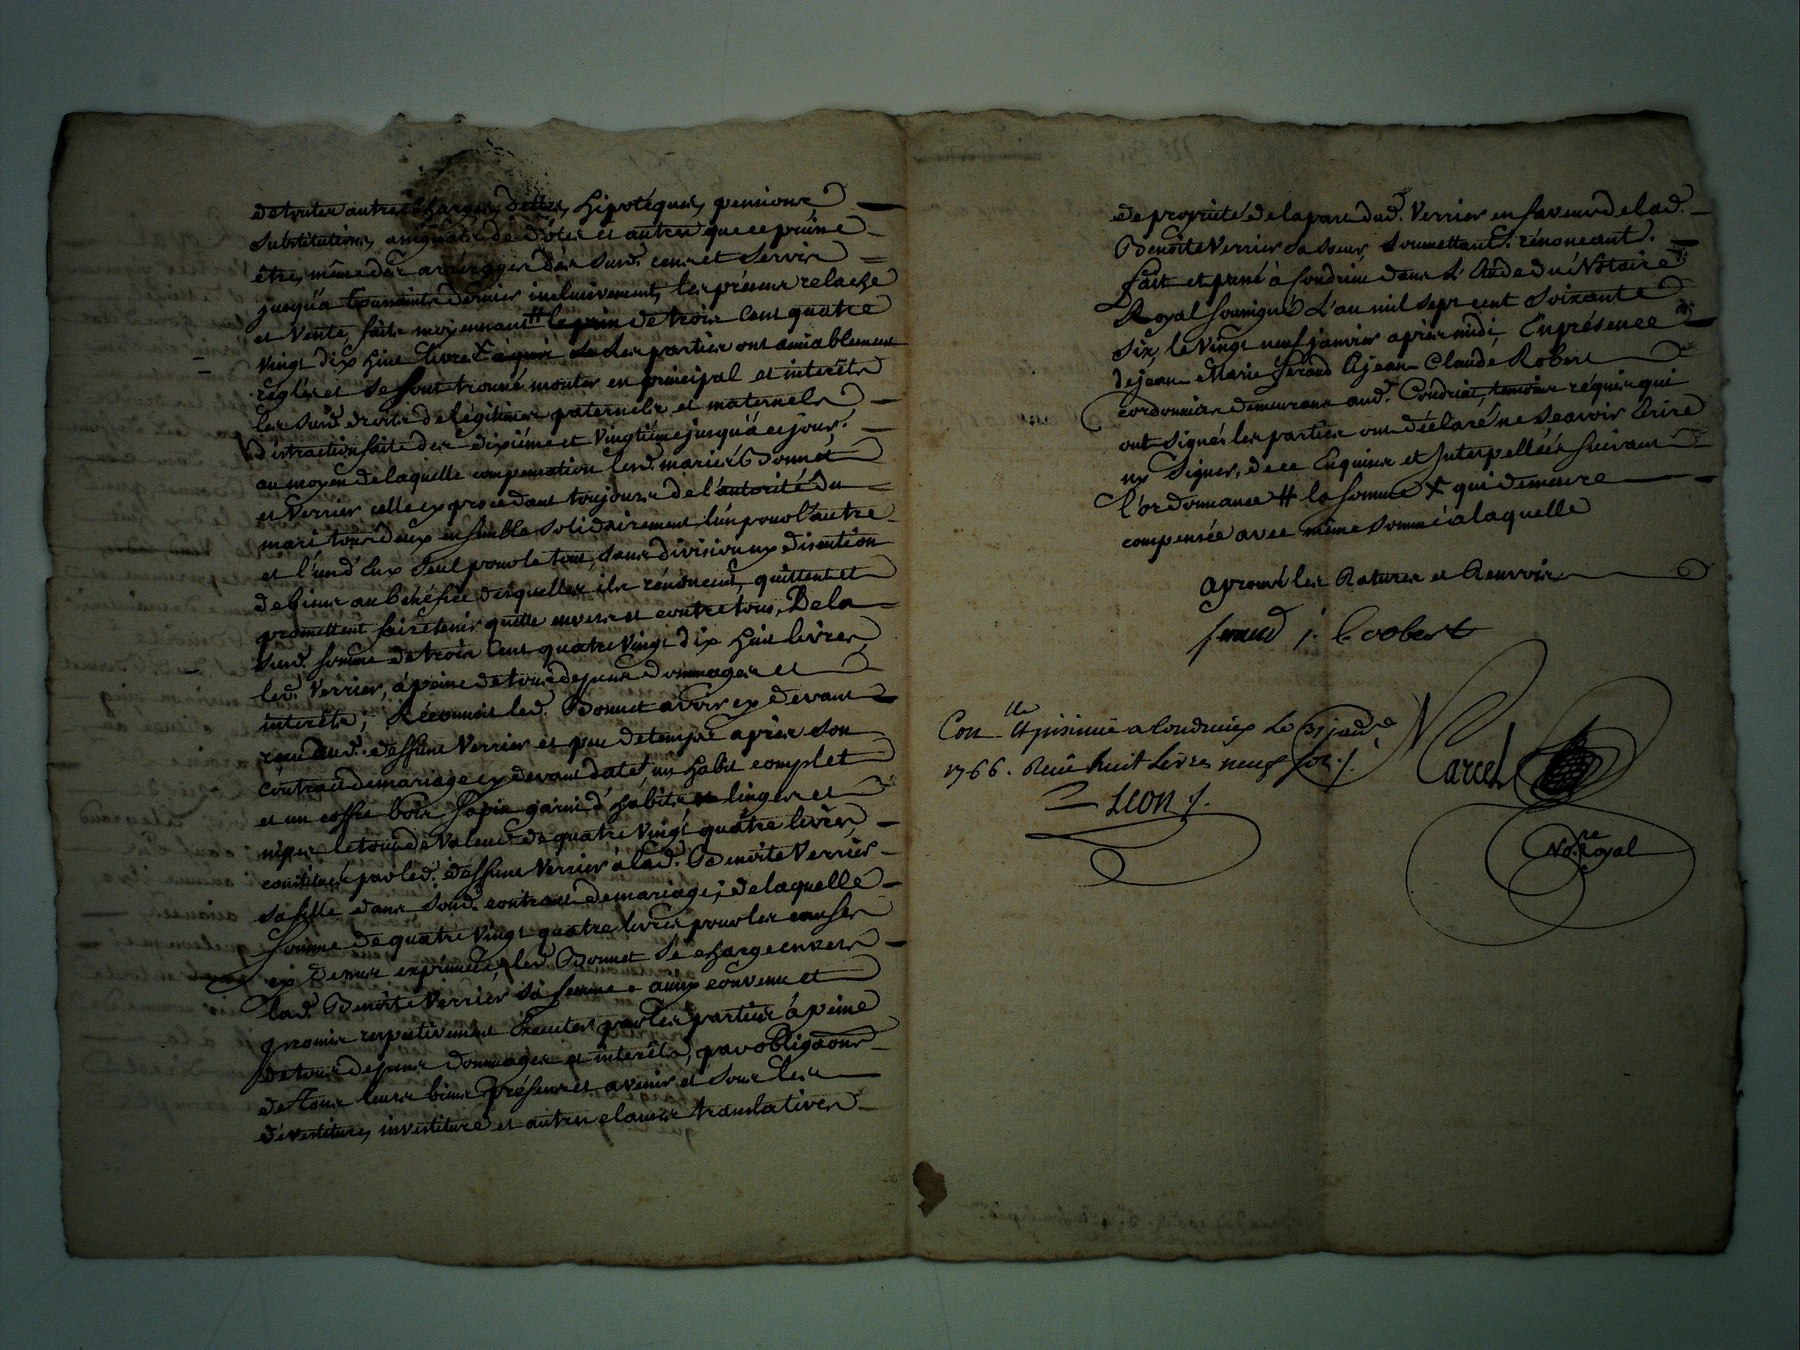 de toutes autres charges, dettes, hipotéques, pensions
substitutions, assignats de dotes et autres que ce puisse
être, même des arrerages des susd. cens et servis
jusqu'a Toussaints dernier inclusivement, les présens relache
et Vente, faits moyennant # le prix de trois Cent quatre
Vingt dix huit livres à quoi les parties ont amiablement
réglés et se sont trouvé monter en principal et intérêts
les susd. droits de légitimes paternels et maternels
distraction faite des dixiéme et Vingtiéme jusqu'à ce jour;
au moyen de laquelle compensation lesd. mariés Bonnet
et Verrier celle cy procedant toujours de l'autorité du
mari tous deux ensemble solidairement l'un pour l'autre
et l'un d'Eux seul pour le tout, sans division ny discution
de biens au bénéfice desquelles ils rénoncent, quittent et
promettent faire tenir quitte envers et contre tous, De la
susd. somme de trois Cent quatre Vingt dix huit livres
led. Verrier, à peine de tous dépens dommages et
interêts; Réconnoit led. Bonnet avoir cy devant
reçu dud. deffunt Verrier et peu de temps après son
contract de mariage cy devant daté, un habit complet
et un coffre bois sapin garni d'habits, linges et
nipes le tout de Valeur de quatre Vingt quatre livres
constitués par led. deffunt Verrier à lad. Benoite Verrier
sa fille dans sond. contract de mariage; de laquelle
somme de quatre Vingt quatre livres pour les causes
cy dessus exprimées, led. Bonnet se charge envers
lad. Benoite Verrier sa femme. ainsy convenu et
promis respectivement Executer par les parties à peine
de tous dépens dommages et interêts, par obligâons
de Tous leurs biens présens et avenir et sous les
dévestiture, investiture et autres clauses translatives
de proprieté de la part dud. Verrier en faveur de lad.
Benoite Verrier sa soeur, soumettant, rénonçant.
fait et passé à Condrieu dans L'Etude du Notaire
Royal soussigné L'an mil sept cent soixante
six, le vingt neuf janvier après midi, En présence
de jean Marie Feraud & jean Claude Robert
cordonniers demeurans aud. Condrieu, temoins réquis qui
ont signé, les parties ont déclaré ne sçavoir Ecrire
ny signer, de ce Enquises et Interpellées suivant
l'ordonnance # la somme x qui demeure
compensée avec même somme à laquelle
aprouvé les Ratures et Renvois
feraud j. C robert
Con lle et insinué a Condrieux Le 31 janv
1766. Receu huit Livres neuf sols
Leon
Marcel
No.re Royal